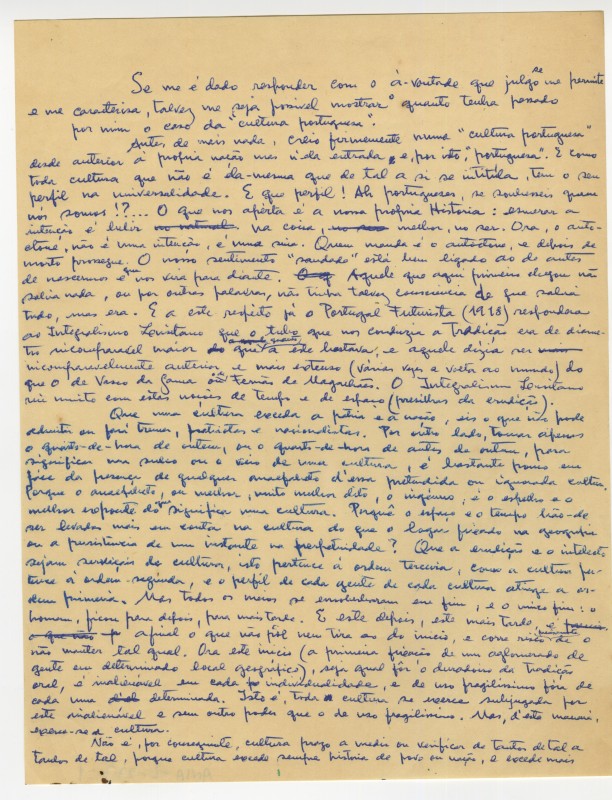 Se me é dado responder com o à-vontade que julgo se me permite
e me caracterisa, talvez me seja possivel mostrar o quanto tenha pesado
por mim o caso da "cultura portuguesa".
Antes de mais nada, creio firmemente numa "cultura portuguesa"
desde anterior à propria nação mas n'ela entrada, e, por isto, "portuguesa". E como
toda cultura que não é ela-mesma que de tal a si se intitula, tem o seu
perfil na universalidade. E que perfil! Ah portugueses, se soubesseis quem
nos somos!?... O que nos aperta é a nossa própria Historia: esmerar a
intuição é lidar na coisa, melhor, no ser. Ora, o auto-
ctone, não é uma intuição, é uma sina. Quem manda é o autoctone, e depois de
morto prossegue. O nosso sentimento "saudade" está bem ligado ao de antes
de nascermos e que nos vira para diante. Aquele que aqui primeiro chegou não
sabia nada, ou por outras palavras, não tinha talvez consciencia de que sabia
tudo, mas era. E a este respeito já o Portugal Futurista (1918) respondera
ao Integralismo Lusitano que o tubo que nos conduzia a Tradição era de diame-
tro incomparavel maior do que a este bastava, e aquele dizia ser
incomparavelmente anterior e mais extenso (varias vezes a volta ao mundo) do
que o de Vasco da Gama ou Fernão de Magalhães. O Integralismo Lusitano
riu muito com estas noções de tempo e de espaço (presilhas da erudição).
Que uma cultura exceda a pátria e a nação, eis o que não pode
admitir ou faz tremer, patriotas e nacionalistas. Por outro lado, tomar apenas
o quarto-de-hora de ontem, ou o quarto-de-hora de antes de ontem, para
significar um sulco ou o veio de uma cultura, é bastante pouco em
face da presença de qualquer analfabeto d'essa pretendida ou ignorada cultura.
Porque o analfabeto, ou melhor, muito melhor dito, o ingenuo, é o espelho e o
melhor expoente do que significa uma cultura. Porquê o espaço e o tempo hão-de
ser levados mais em conta na cultura do que o logar ficado na geografia
ou a persistencia de um instante na perpetuidade? Que a erudição e o intelecto
sejam serviçaes da cultura, isto pertence à ordem terceira, como a cultura per-
tence à ordem-segunda, e o perfil de cada agente de cada cultura atinge a or-
dem primeira. Mas todos os meios se envolveram em fim, e o unico fim: o
homem, ficou para depois, para mais tarde. E este depois, este mais tarde, é
afinal o que não põe nem tira ao do inicio, e corre risco de o
não manter tal qual. Ora este inicio (a primeira fixação de um aglomerado de
gente em determinado local geografico), seja qual fôr o duradouro da tradição
oral, é inalienável em cada individualidade, e de uso fragilissimo fóra de
cada uma determinada. Isto é, toda a cultura se exerce subjugada por
este inalienável e sem outro poder que o de uso fragilissimo. Mas, d'esta maneira,
exerce-se a cultura.
Não é, por conseguinte, cultura prazo a medir ou verificar de tantos de tal a
tantos de tal, porque cultura excede sempre história de povo ou nação, e excede mais